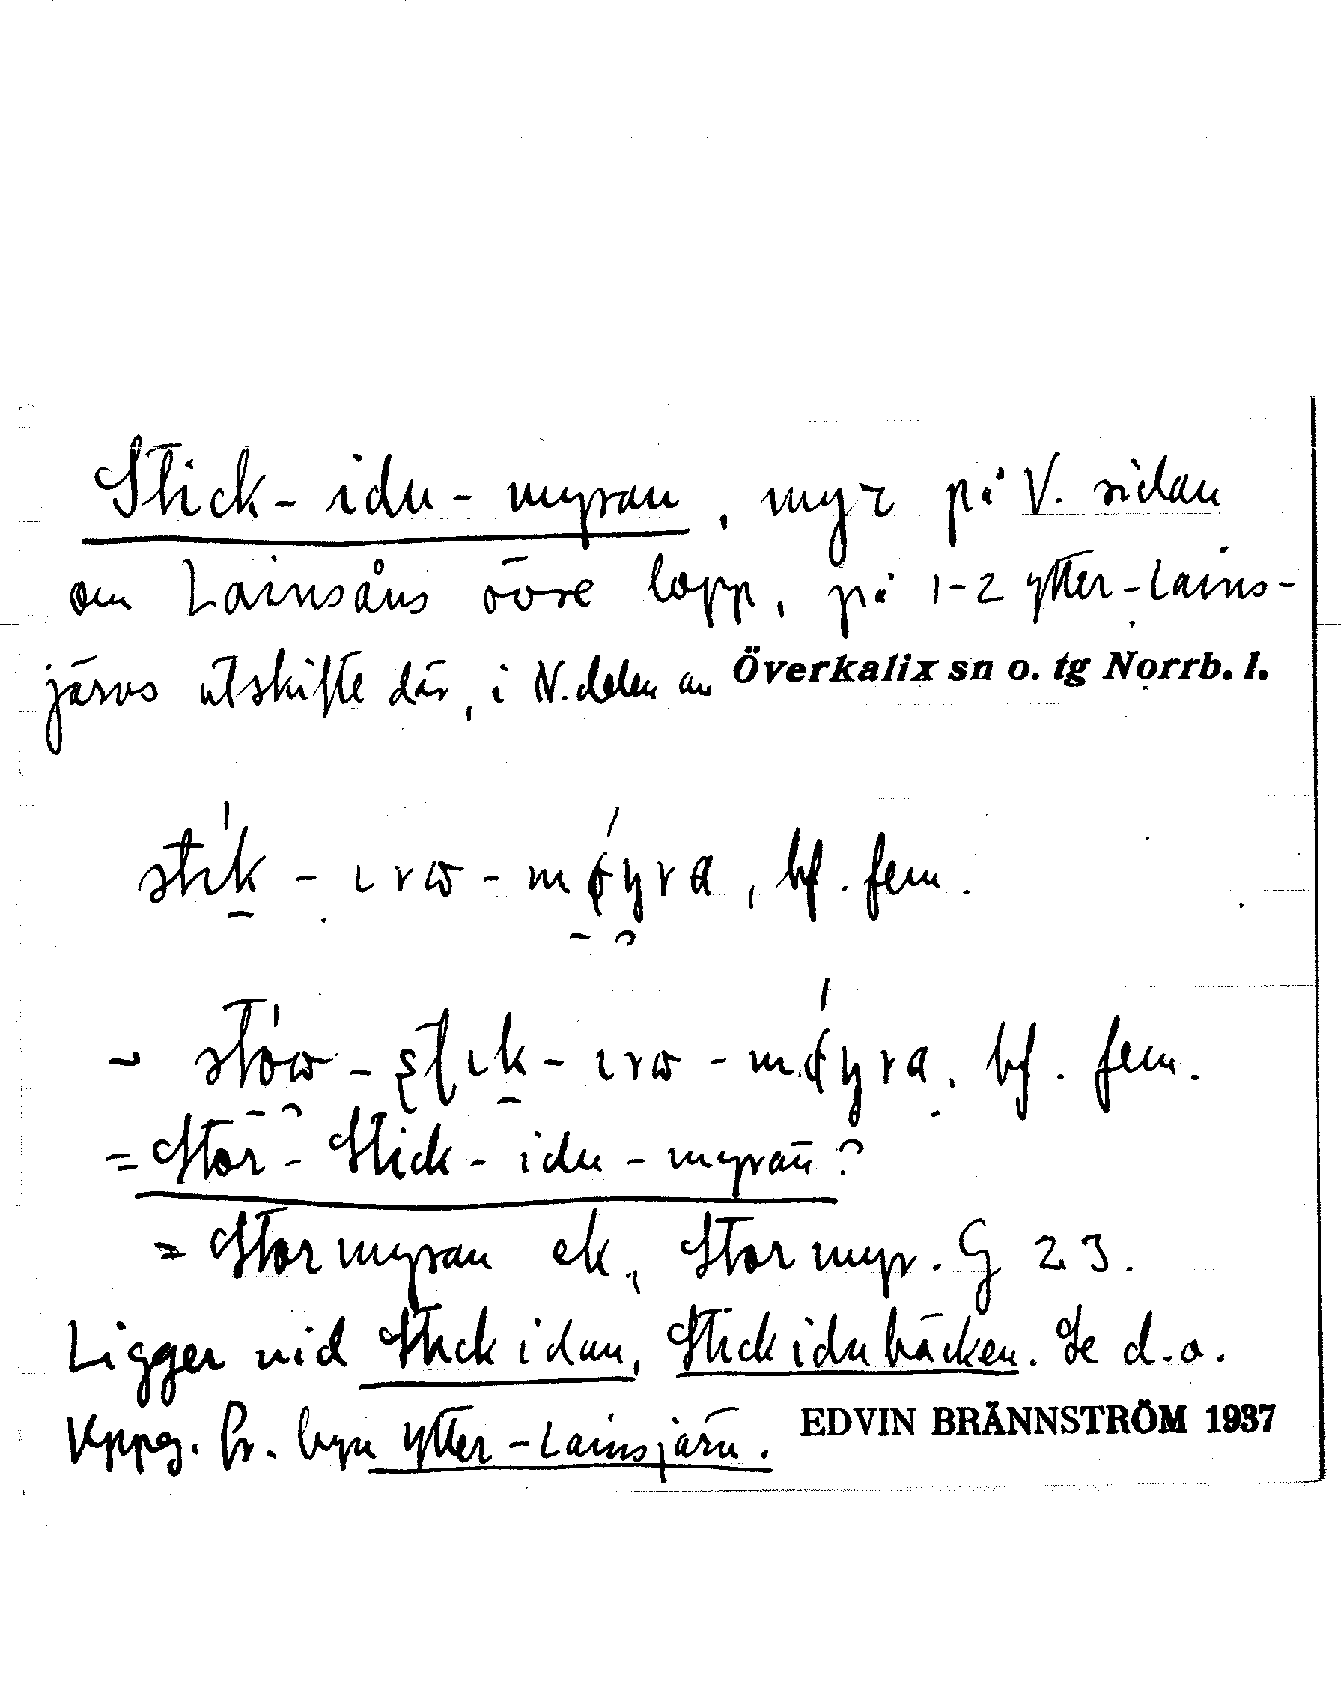 Stick-idu-myran, myr på V. sidan
om Lainsåns övre lopp, på 1-2 Ytter-Lains-
järvs utskifte där, i N. delen av Överkalix sn o. tg Norrb. l.
bf. fem.
bf. fem.
= Stor-Stick-idu-myran?
= Stormyran ek., Stormyr. G 23.
Ligger vid Stickidan, Stickidubäcken. Se d.o.
Uppg. fr. byn Ytter-Lainsjärv. EDVIN BRÄNNSTRÖM 1937